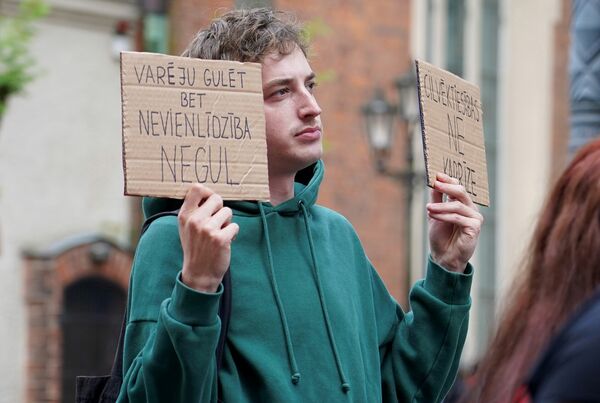 VARĒJU GULĒT
BET
NEVIENLĪDZĪBA
NEGUL
CILVĒKTIESĪBAS
NE
KAPRĪZE